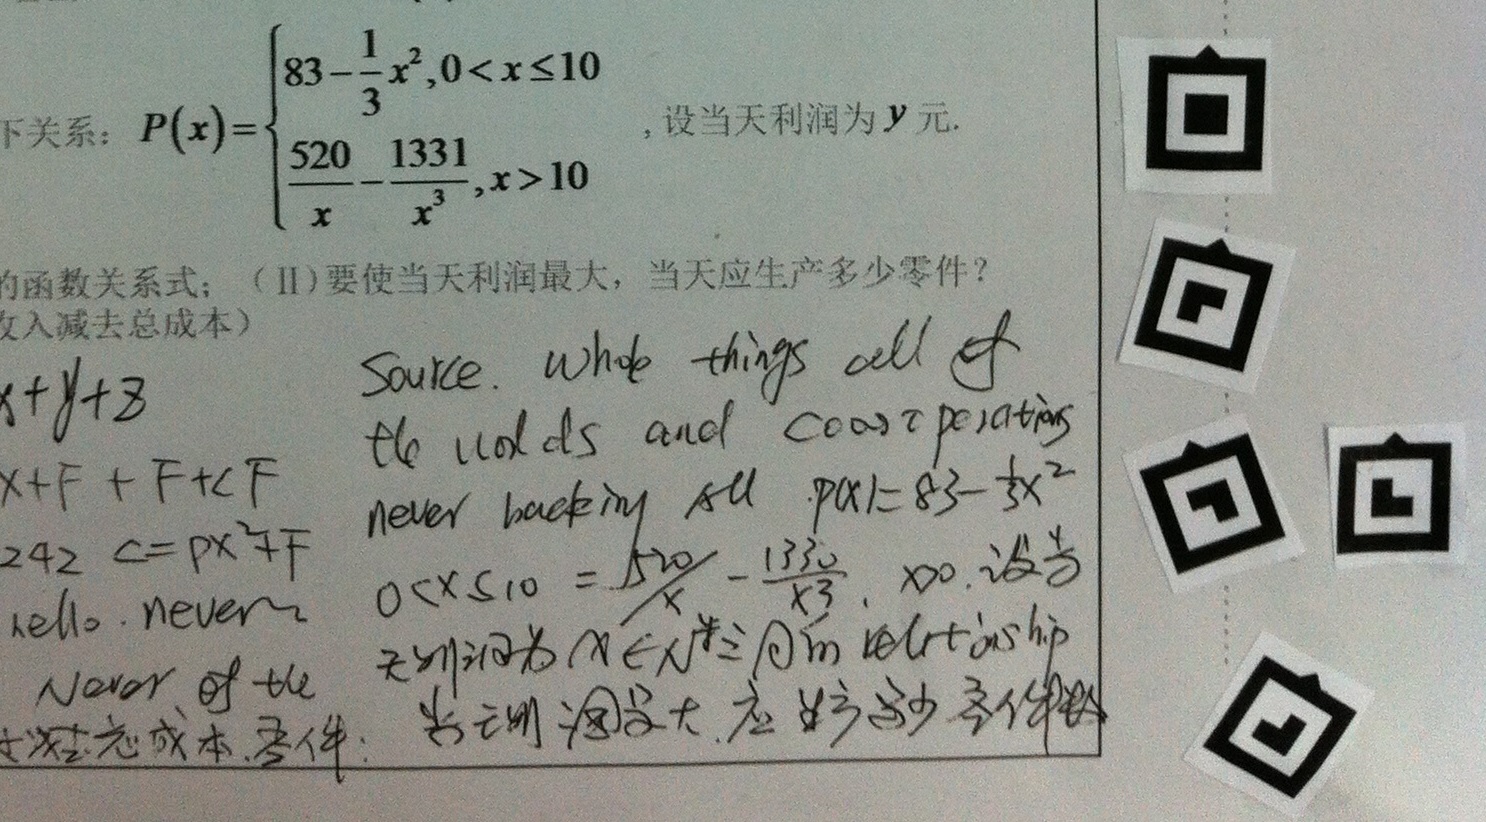 下关系: P(x)= { 83-1/3x², 0<x≤10
520/x - 1331/x³, x>10 , 设当天利润为 y 元.
的函数关系式; (Ⅱ)要使当天利润最大, 当天应生产多少零件?
收入减去总成本)
x+y+z
x+F+F+cF
242 c=px²+F
hello. never
Never of the
成本.零件.
Source. Whole things all of
the and
never backing all p(x)=83-1/3x²
0<x≤10 = 520/x - 1330/x3, x>0. 设当
天利润为 x∈N* 之间 in relationship
当天利润最大. 应 多少零件